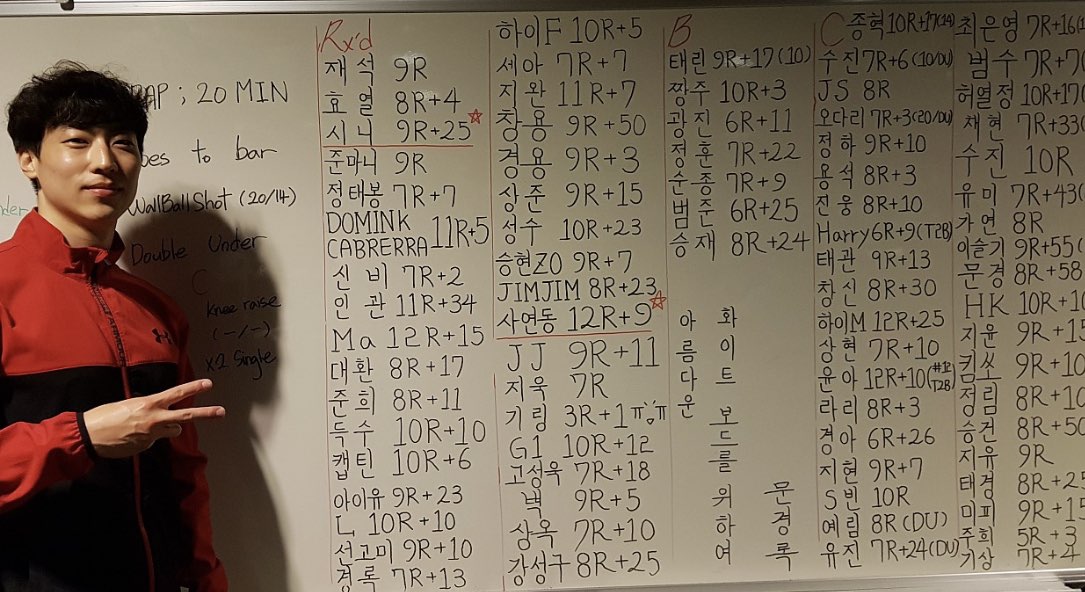 AP ; 20 MIN
oes to bar
Wall Ball Shot (20/14)
Double Under
C
knee raise
(-/-)
x2 single
Rx'd
재석 9R
효열 8R+4
시니 9R+25
준마니 9R
정태봉 7R+7
DOMINK
CABRERRA 11R+5
신비 7R+2
인관 11R+34
Ma 12R+15
대환 8R+17
준희 8R+11
득수 10R+10
캡틴 10R+6
아이유 9R+23
ㄴ 10R+10
선고미 9R+10
경록 7R+13
하이F 10R+5
세아 7R+7
지완 11R+7
창용 9R+50
경용 9R+3
상준 9R+15
성수 10R+23
승현ZO 9R+7
JIMJIM 8R+23
사연동 12R+9
JJ 9R+11
지욱 7R
기링 3R+1
G1 10R+12
고성욱 7R+18
벽 9R+5
상옥 7R+10
강성구 8R+25
B
태린 9R+17 (10)
짱주 10R+3
광진 6R+11
정훈 7R+22
순종 7R+9
범준 6R+25
승재 8R+24
아름다운
화이트보드를
위하여
문경록
C 종혁 10R+17(14)
수진 7R+6 (10/DU)
JS 8R
오다리 7R+3(20/DU)
정하 9R+10
용석 8R+3
진웅 8R+10
Harry 6R+9 (T2B)
태관 9R+13
창신 8R+30
하이M 12R+25
상현 7R+10
윤아 12R+10 (T2B
라리 8R+3
경아 6R+26
지현 9R+7
S빈 10R
예림 8R (DU)
유진 7R+24 (DU)
최은영 7R+16
범수 7R+7
허열정 10R+17
채현 7R+33
수진 10R
유미 7R+43
가연 8R
이슬기 9R+55
문경 8R+58
HK 10R+1
지운 9R+1
킴쏘 9R+10
정림 8R+10
승건 8R+50
지유 9R
태경 8R+2
미피 9R+1
주희 5R+3
기상 7R+4